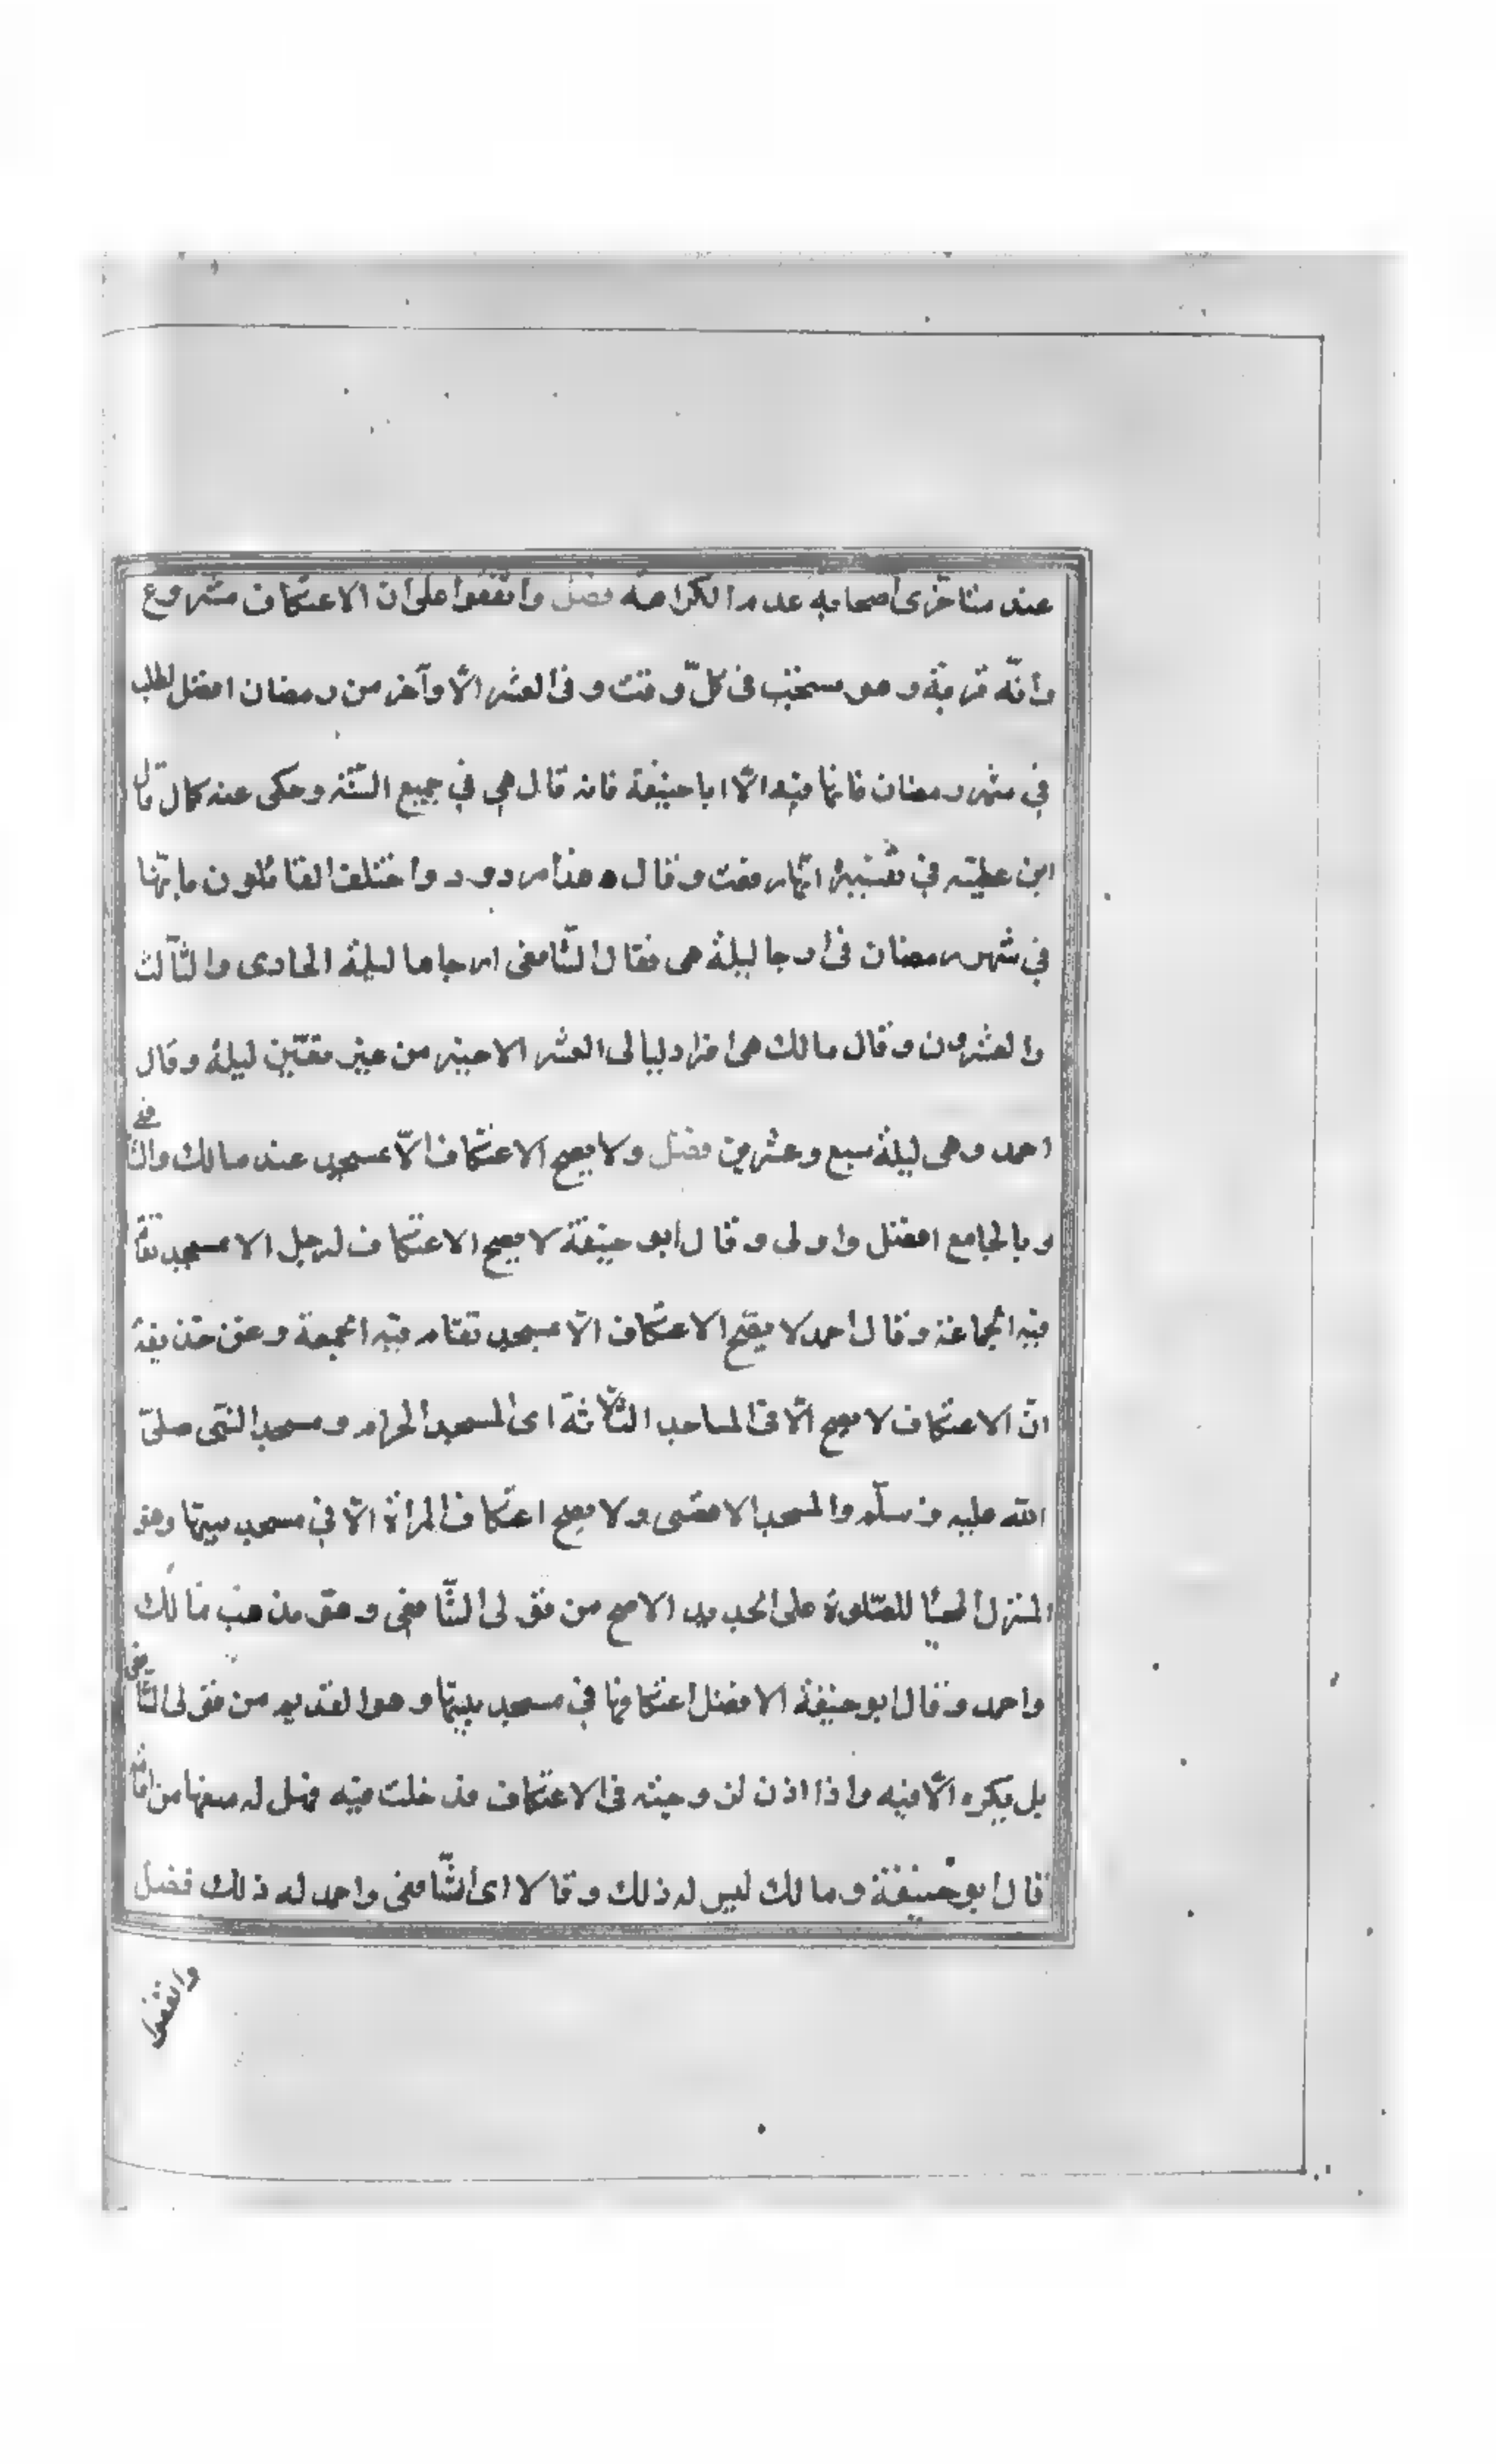 عند متاخّرى اصحابه عدم الكراهة فصل واتّفقوا على ان الاعتكاف مشروع
وانّه قربة وهو مستحبّ فى كلّ وقت وفى العشر الاوآخر من رمضان افضل لطلب
في شهر رمضان فانها فيه الّا ابا حنيفة فانه قال هي في جميع السّنة وحكى عنه كمال قال
ابن عطيّة في تفسيره انّها رفعت وقال هذا مردود واختلف القائلون بانّها
في شهر رمضان فى ارجا ليلة هى فقال الشّافعى ارجاها ليلة الحادى والثّالث
والعشرون وقال مالك هى افراد ليالى العشر الاخير من غير تعيّين ليلة وقال
احمد وهى ليلة سبع وعشرين فصل ولا يصح الاعتكاف الّا بمسجد عند مالك والشّافعى
وبالجامع افضل واولى وقال ابو حنيفة لا يصح الاعتكاف لرجل الا بمسجد تقام
فيه الجماعة وقال احمد لا يصّح الاعتكاف الّا بمسجد تقام فيه الجمعة وعن حذيفة
انّ الاعتكاف لا يصح الّا فى المساجد الثّلاثة اى المسجد الحرام ومسجد النّبى صلّى
الله عليه وسلّم والمسجد الاقصى ولا يصح اعتكاف المرأة الّا في مسجد بيتها وهو
المنزل المهيّا للصّلوة على الجديد الاصح من قولى الشّافعى وهو مذهب مالك
واحمد وقال ابو حنيفة الافضل اعتكافها في مسجد بيتها وهو القديم من قولى الشّافعى
بل يكره الّا فيه واذا اذن لزوجته فى الاعتكاف فدخلت فيه فهل له منعها من اتمامه
قال ابو حنيفة ومالك ليس له ذلك وقالا اى الشّافعى واحمد له ذلك فصل
واتّفقوا